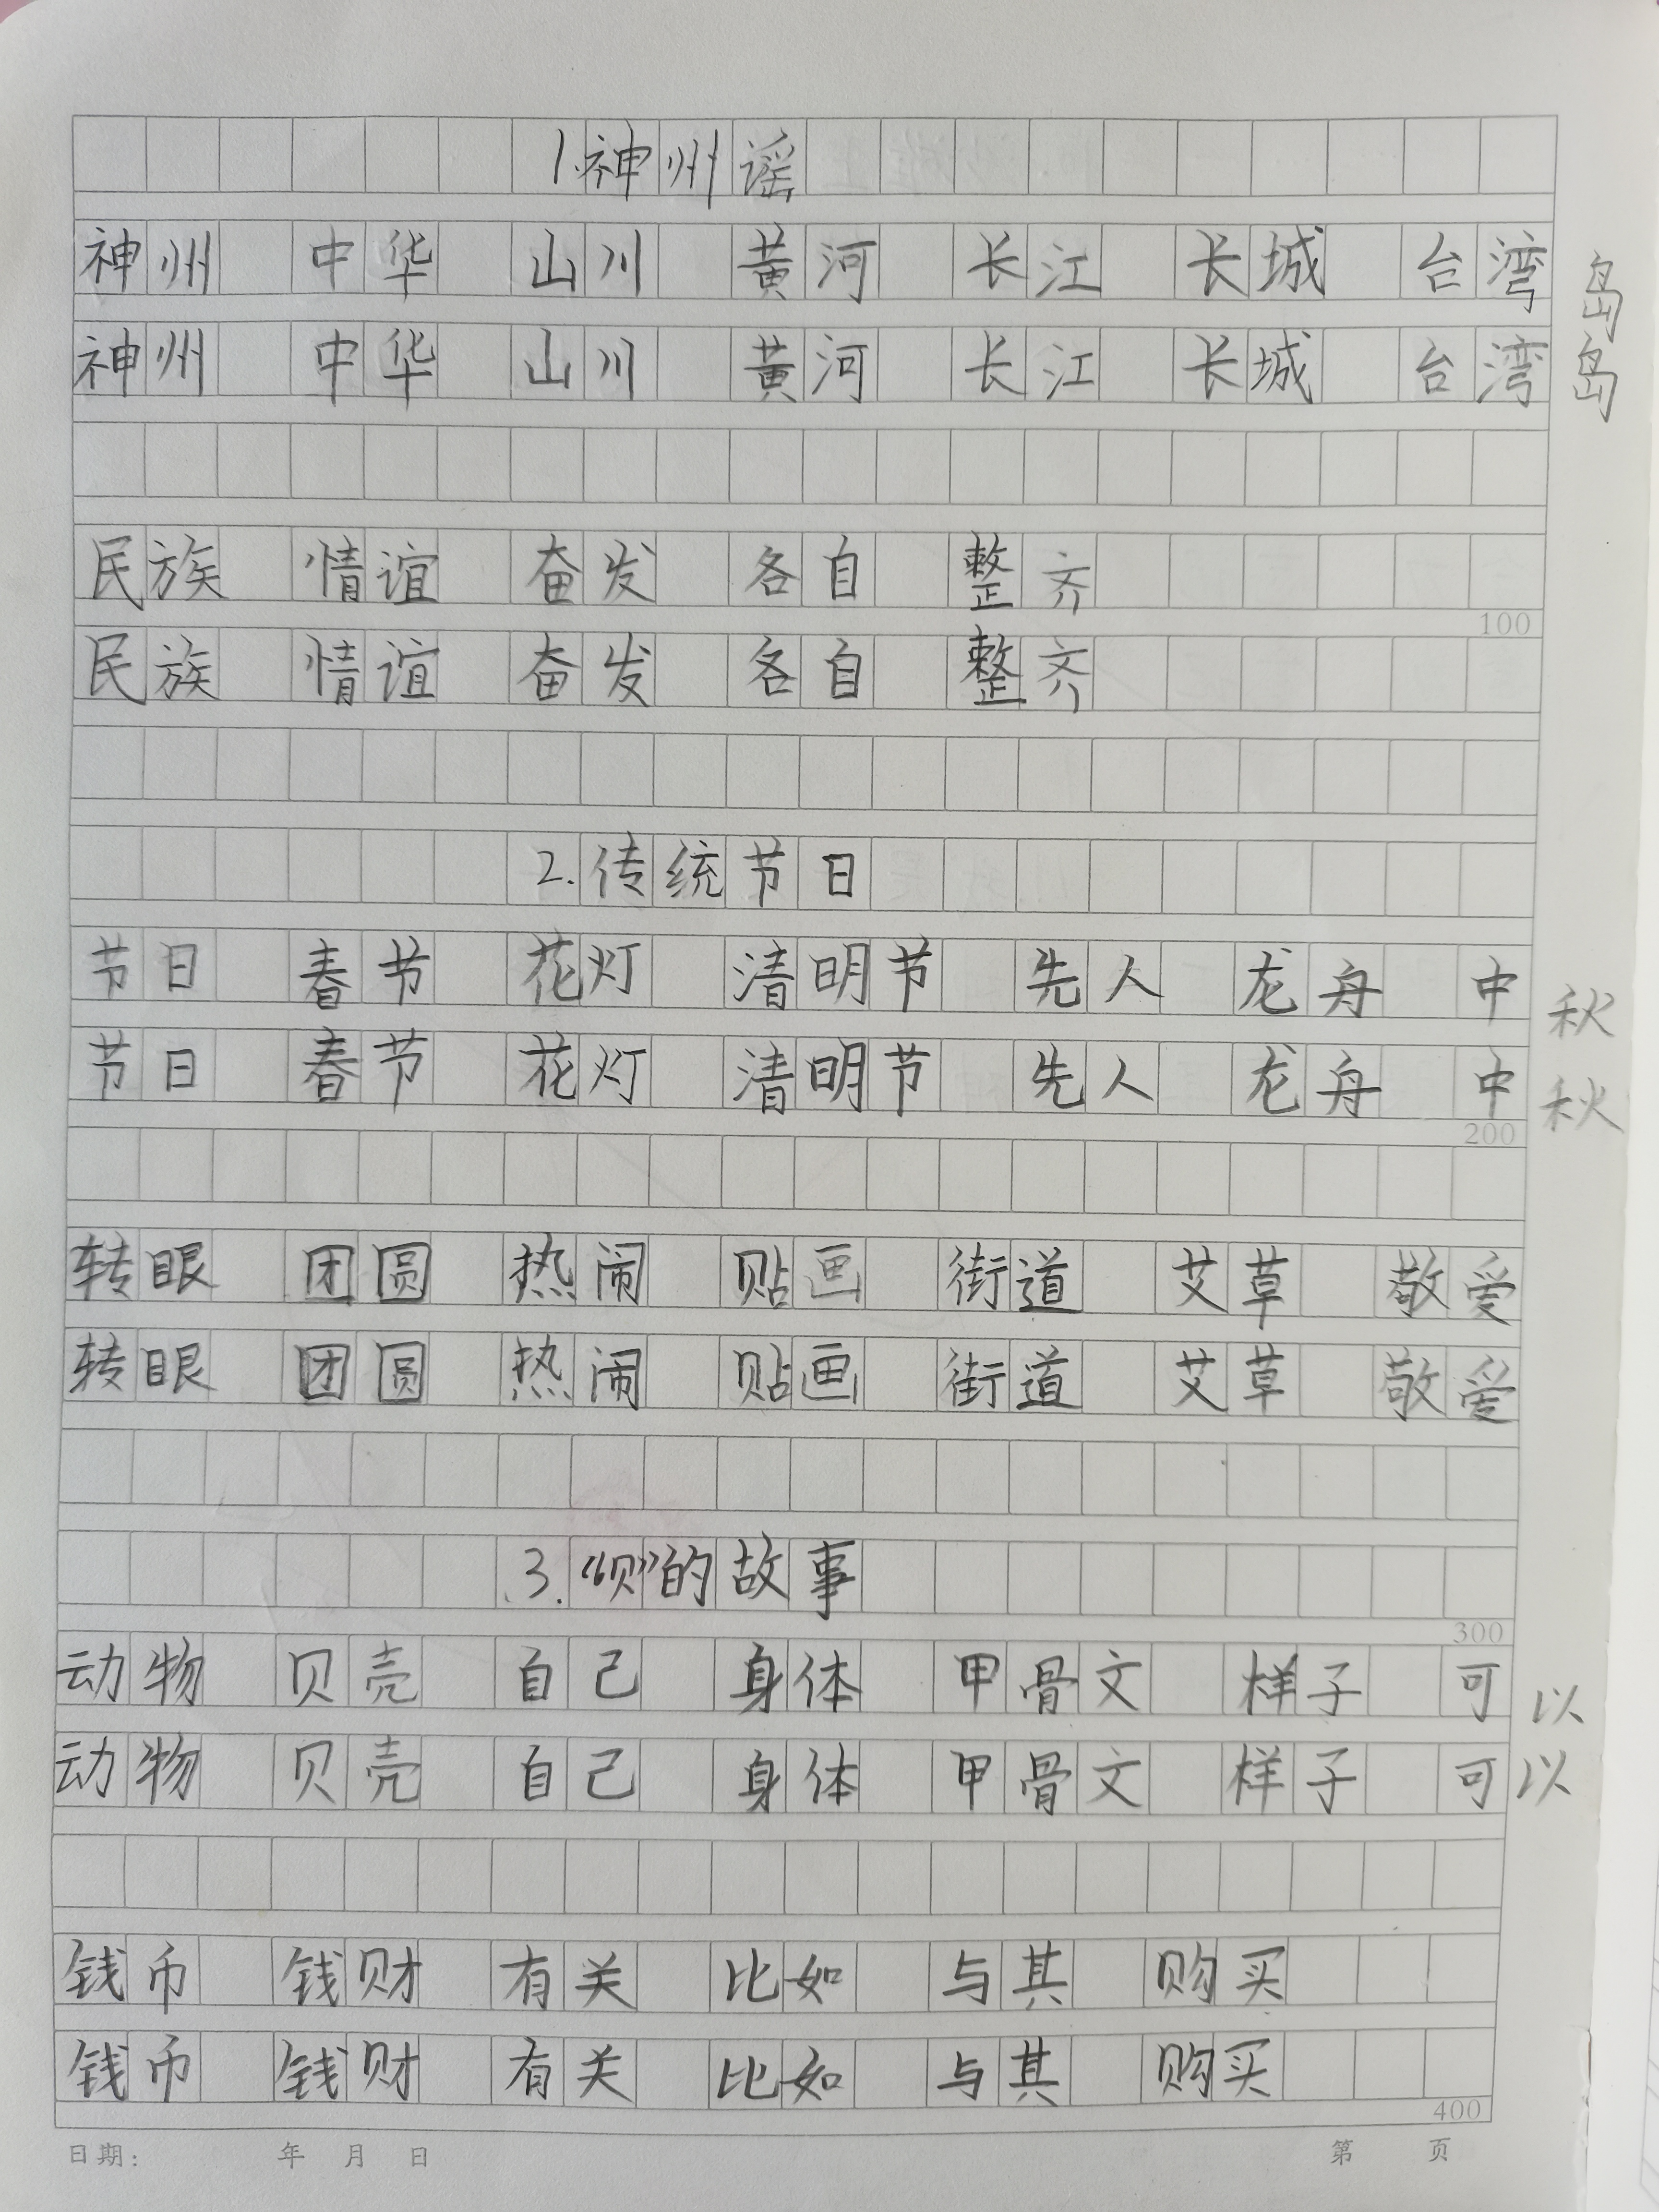 1.神州谣
神州 中华 山川 黄河 长江 长城 台湾岛
神州 中华 山川 黄河 长江 长城 台湾岛
民族 情谊 奋发 各自 整齐
100
民族 情谊 奋发 各自 整齐
2.传统节日
节日 春节 花灯 清明节 先人 龙舟 中秋
节日 春节 花灯 清明节 先人 龙舟 中秋
200
转眼 团圆 热闹 贴画 街道 艾草 敬爱
转眼 团圆 热闹 贴画 街道 艾草 敬爱
3.“贝”的故事
300
动物 贝壳 自己 身体 甲骨文 样子 可以
动物 贝壳 自己 身体 甲骨文 样子 可以
钱币 钱财 有关 比如 与其 购买
钱币 钱财 有关 比如 与其 购买
400
日期: 年 月 日 第 页